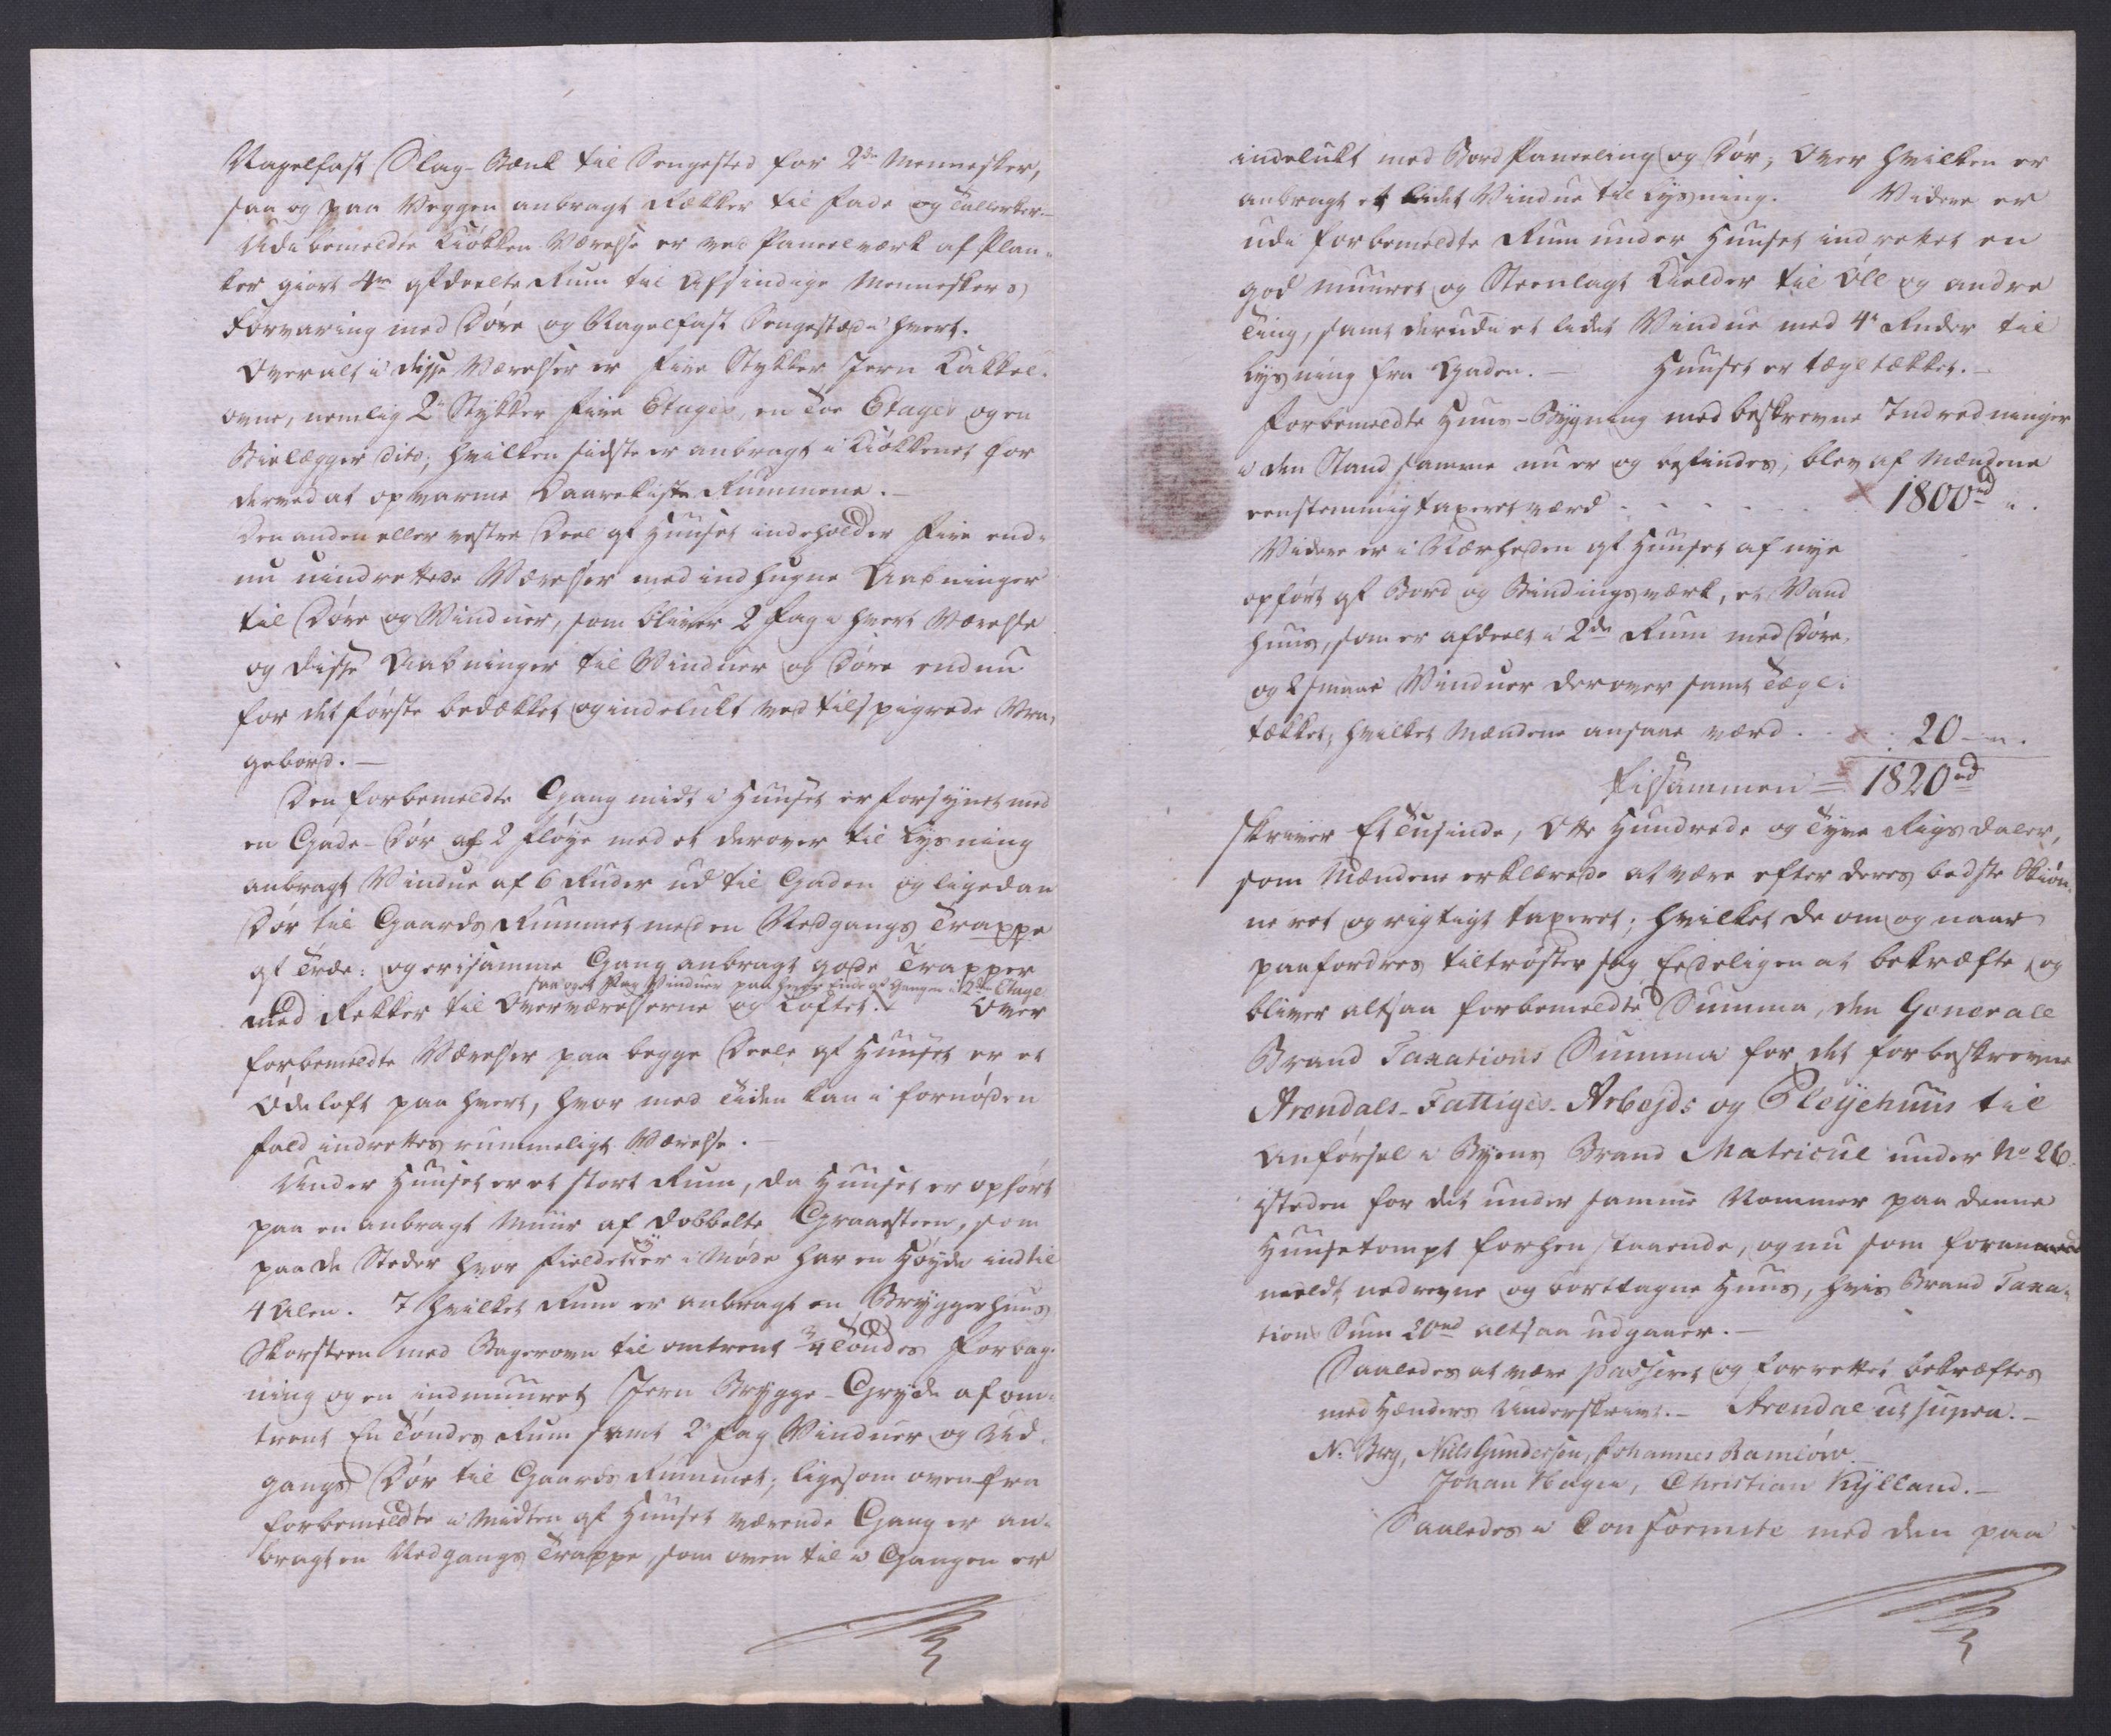 Nagelfast Slag-Bænk til Sengested for 2de Mennesker,
saa og paa Veggen anbragt Rekker til Fade og Tallerker.
Udi bemeldte Kiökken Værelse er ved Paneelværk af Plan-
ker giort 4re afdeelte Rum til Afsindige Menneskers
Forvaring med Döre og Nagelfast Sengested i hvert.
Overalt i disse Værelser er Fire Stykker Jern Kakkel-
ovne, nemlig 2 Stykker Fire Etages, en Toe Etages og en
Bielægger dito; hvilken sidste er anbragt i Kiökkenet for
derved at opvarme Daarekiste Rummene.
Den anden eller vestre Deel af Huuset indeholder Fire end-
nu uindrettede Værelser med indhugne Aabninger
til Döre og Vinduer, som bliver 2 Fag i hvert Værelse
og disse Aabninger til Vinduer og Döre endnu
for det förste bedækket og indelukt med tilspigrede Vra-
gebord.
Den forbemeldte Gang midt i Huuset er forsynet med
en Gade-Dör af 2 Flöye med et derover til Lysning
anbragt Vindue af 6 Ruder ud til Gaden og ligedan
Dör til Gaards Rummet med en Nedgangs Trappe
af Træe: og er i samme Gang anbragt gode Trapper
saa og et Fag Vinduer paa hver Ende af Gangen i 2den Etage
med Rekker til Overværelserne og Loftet. Over
forbemeldte Værelser paa begge Deele af Huuset er et
Ödeloft paa hvert, hvor med Tiden kan i fornöden
fald indrettes rummeligt Værelse.
Under Huuset er et stort Rum, da Huuset er opfört
paa en anbragt Muur af dobbelte Graaesteen, som
paa de Steder hvor Fieldet ey er i Möde har en Höyde indtil
4 Alen. I hvilket Rum er anbragt en Bryggerhuus
Skorsteen med Bagerovn til omtrent 3/4 Töndes Forbag-
ning og en indmuuret Jern Brygge-Gryde af om-
trent En Töndes Rum samt 2 Fag Vinduer og Ud-
gangs Dör til Gaards Rummet; ligesom oven fra
forbemeldte i Midten af Huuset værende Gang er an-
bragt en Nedgangs Trappe, som oven til i Gangen er
indelukt med Bord Paneeling og Dör; Over hvilken er
anbragt et lidet Vindue til Lysning. Videre er
udi forbemeldte Rum under Huuset indrettet en
god muuret og Steenlagt Kielder til Öll og andre
Ting, samt derudi et lidet Vindue med 4 Ruder til
Lysning fra Gaden. Huuset er tægltækket.
Forbemeldte Huus-Bygning med beskrevne Indredninger
i den Stand samme nu er og befindes, blev af Mændene
eenstemmig taxeret værd 1800rd
Videre er i Nærheden af Huuset af nye
opfört af Bord og Bindingsværk, et Vand
huus, som er afdeelt i 2de Rum med Döre,
og 2 smaae Vinduer derover samt Tægl-
tækket, hvilket Mændene ansaae værd 20
Tilsammen = 1820rd
skriver Et Tusinde, Otte Hundrede og Tyve Rigsdaler,
som Mændene erklærede at være efter deres bedste Skiön-
ne ret og rigtigt taxeret; hvilket de om og naar
paafordres tiltröster sig Eedeligen at bekræfte, og
bliver altsaa forbemeldte Summa, den Generale
Brand Taxations Summa for det forbeskrevne
Arendals-Fattiges-Arbejds og Pleÿehuus til
Anförsel i Byens Brand Matricul under No 26.
isteden for det under samme Nommer paa denne
Huusetompt forhen staaende, og nu som foran
meldt nedrevne og borttagne Huus, hvis Brand Taxa-
tions Sum 20rd altsaa udgaaer.
Saaledes at være passeret og forrettet bekræftes
med Hænders Underskrivt. Arendal ut supra.
N. Berg, Niels Gundersen, Johannes Ramlöw
Johan Hagen, Christian Kÿlland.
Saaledes i Conformite med den paa